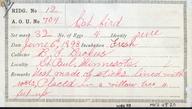 RIDG. No. 12
A.O.U. No. 704 Cat bird
Set mark 32 No. of Eggs 4 Identity sure
Date June 6, 1893 Incubation Fresh
Collector
St Paul, Minnesota
Nest made of sticks lined with
roots, Placed in a willow tree